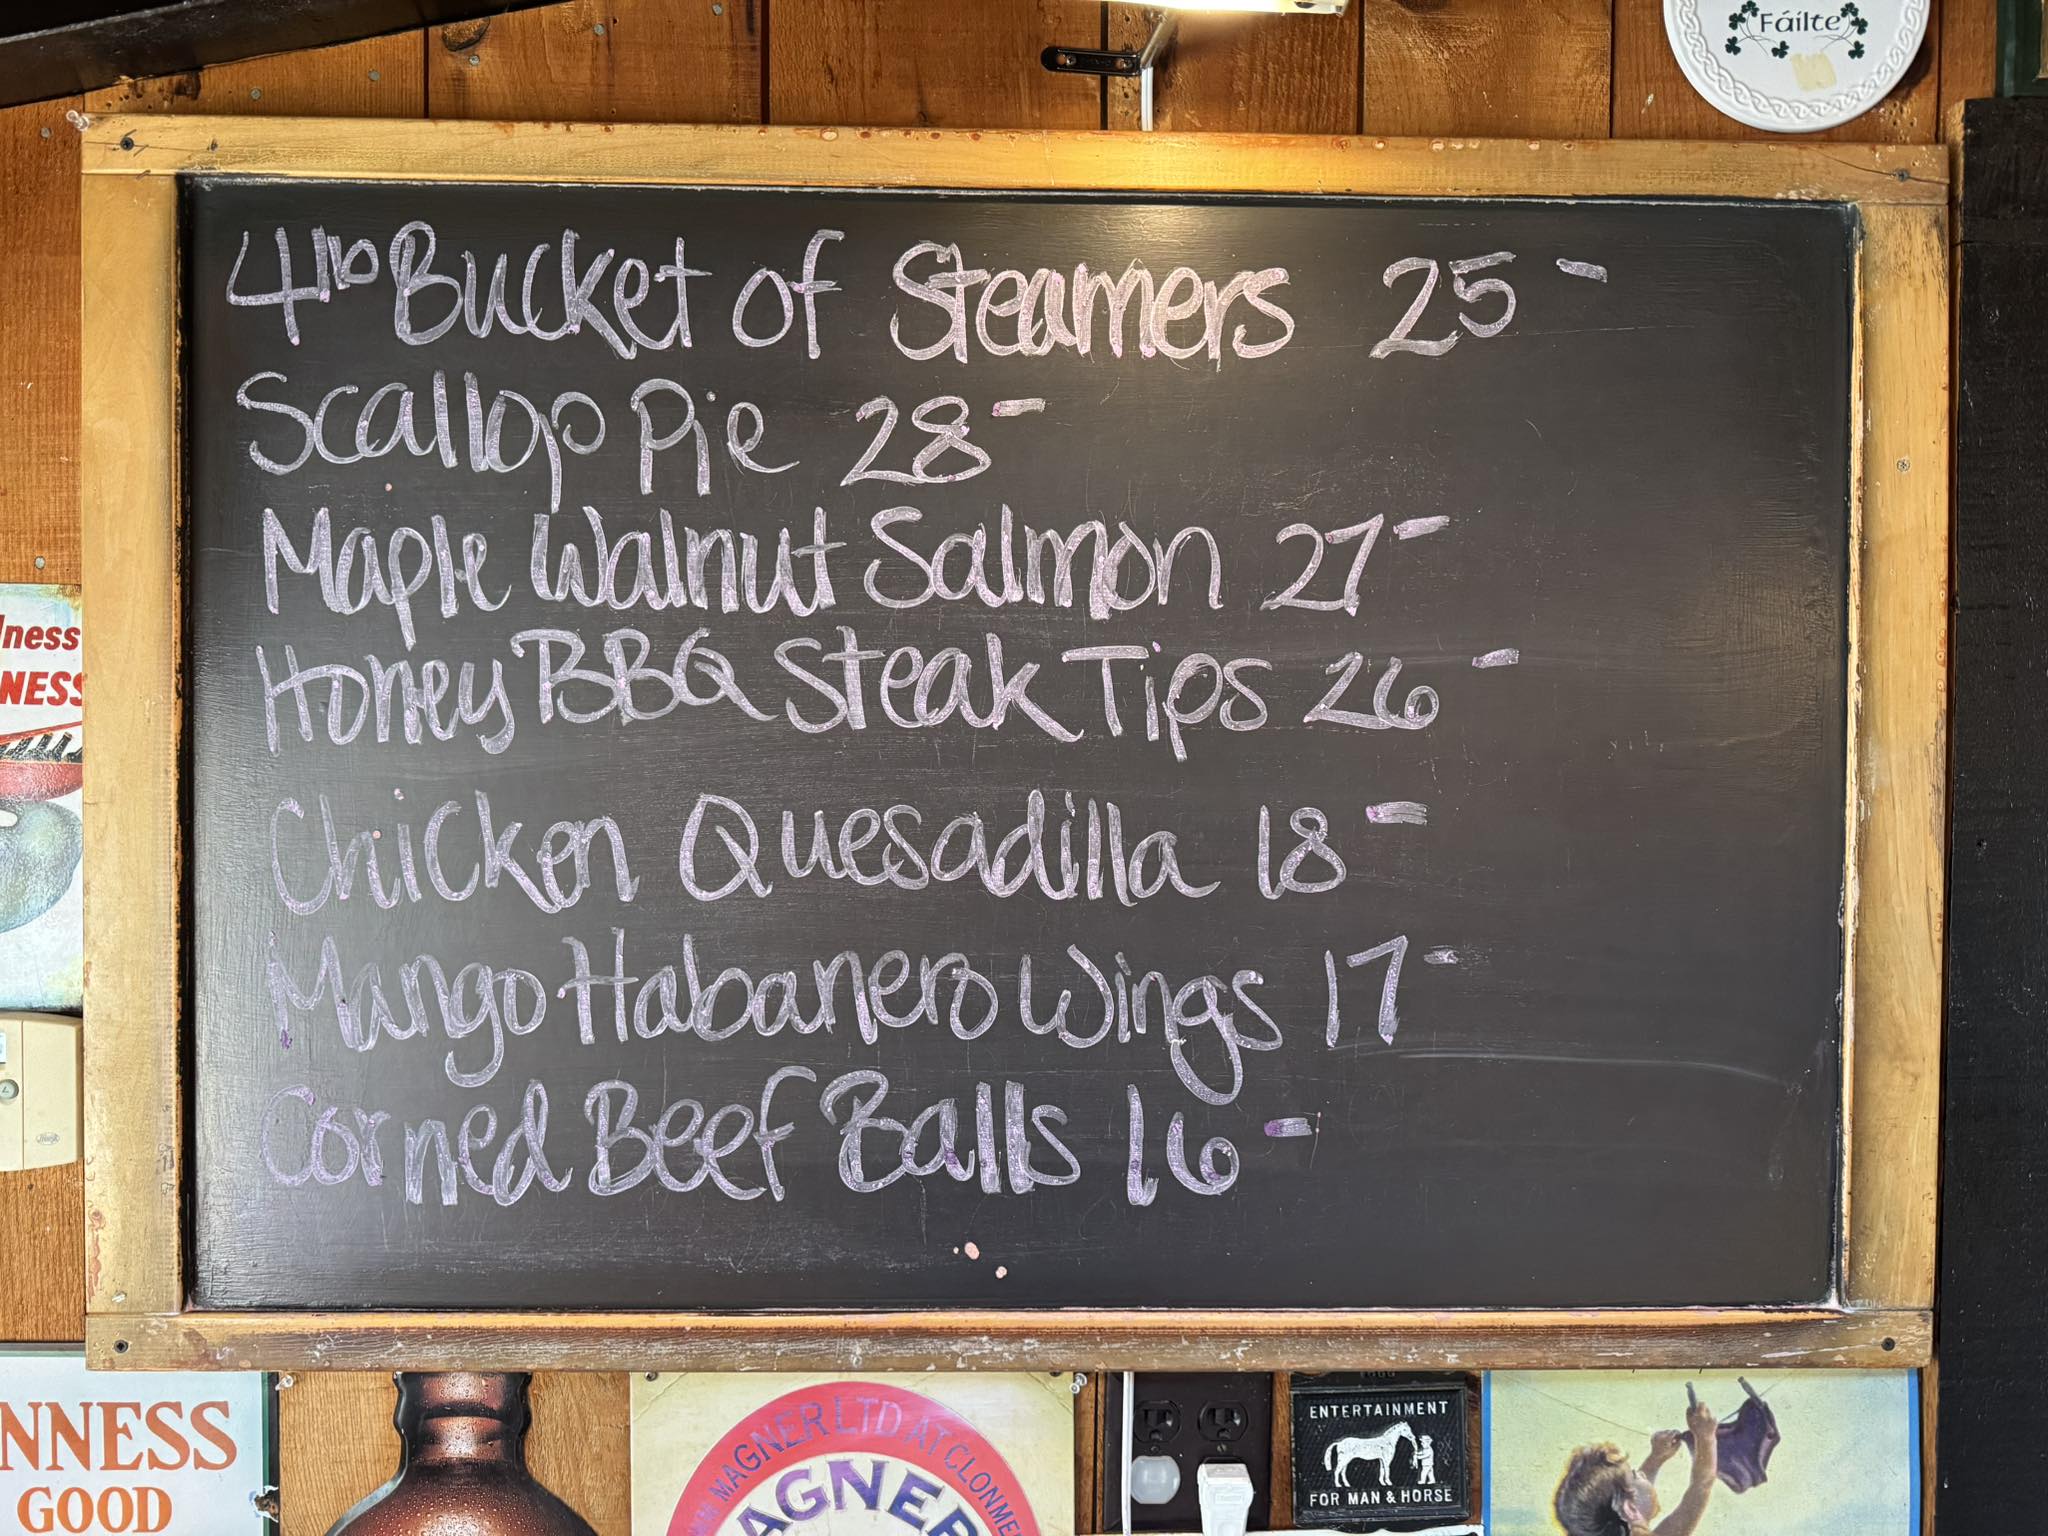 Fáilte
4lb Bucket of Steamers 25-
Scallop Pie 28-
Maple Walnut Salmon 27-
Honey BBQ Steak Tips 26-
Chicken Quesadilla 18-
Mango Habanero Wings 17-
Corned Beef Balls 16-
lness
NESS
NNESS
GOOD
MAGNER LTD AT CLONME
AGNER
ENTERTAINMENT
FOR MAN & HORSE